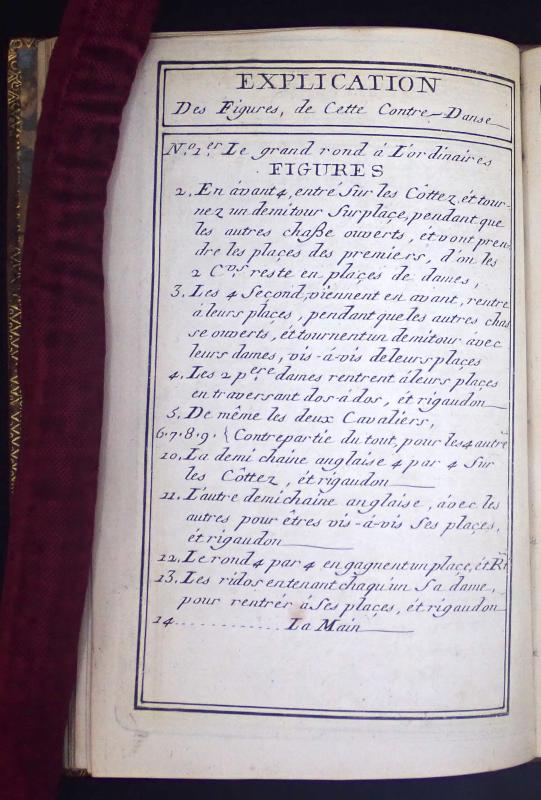 EXPLICATION
Des Figures, de Cette Contre-Danse
N.o 1.er Le grand rond á L'ordinaires
FIGURES
2. En ávant 4, entré sur les Côttez, ét tour-
nez un demi tour sur place, pendant que
les autres chaße ouverts, ét vont pren-
dre les plaçes des premiers, d'on les
2 C.vs reste en plaçes de dames,
3. Les 4 Second, viennent en avant, rentre
á leurs plaçes, pendant que les autres chas
se ouverts, ét tournent un demi tour avec
leurs dames, vis-á-vis de leurs plaçes
4. Les 2 p.ere dames rentrent á leurs plaçes
en traversant dos-á-dos, ét rigaudon
5. De même les deux Cavaliers,
6.7.8.9. { Contrepartie du tout, pour les 4 autre
10. La demi chaine anglaise 4 par 4 sur
les Côttez, ét rigaudon
11. L'autre demi chaine anglaise, ávec les
autres pour êtres vis-á-vis ses plaçes,
ét rigaudon
12. Le rond 4 par 4 en gagnent un plaçe, ét
13. Les ridos en tenant chaqu'un sa dame,
pour rentrér á ses plaçes, ét rigaudon
14 .............. La Main